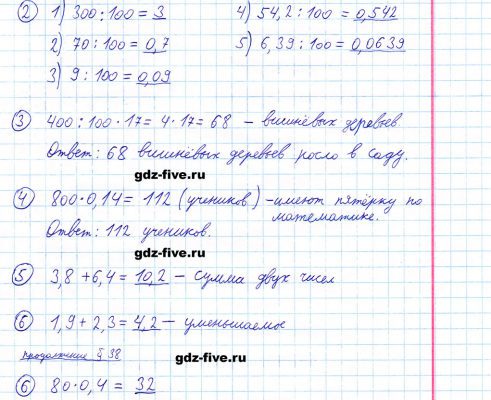 ② 1) 300 : 100 = 3 4) 54,2 : 100 = 0,542
2) 70 : 100 = 0,7 5) 6,39 : 100 = 0,0639
3) 9 : 100 = 0,09
③ 400 : 100 · 17 = 4 · 17 = 68 – вишнёвых деревьев
Ответ: 68 вишнёвых деревьев росло в саду.
gdz-five.ru
④ 800 · 0,14 = 112 (учеников) – имеют пятёрку по
математике.
Ответ: 112 учеников.
gdz-five.ru
⑤ 3,8 + 6,4 = 10,2 – сумма двух чисел
gdz-five.ru
⑥ 1,9 + 2,3 = 4,2 – уменьшаемое
продолжение § 38
gdz-five.ru
⑥ 80 · 0,4 = 32